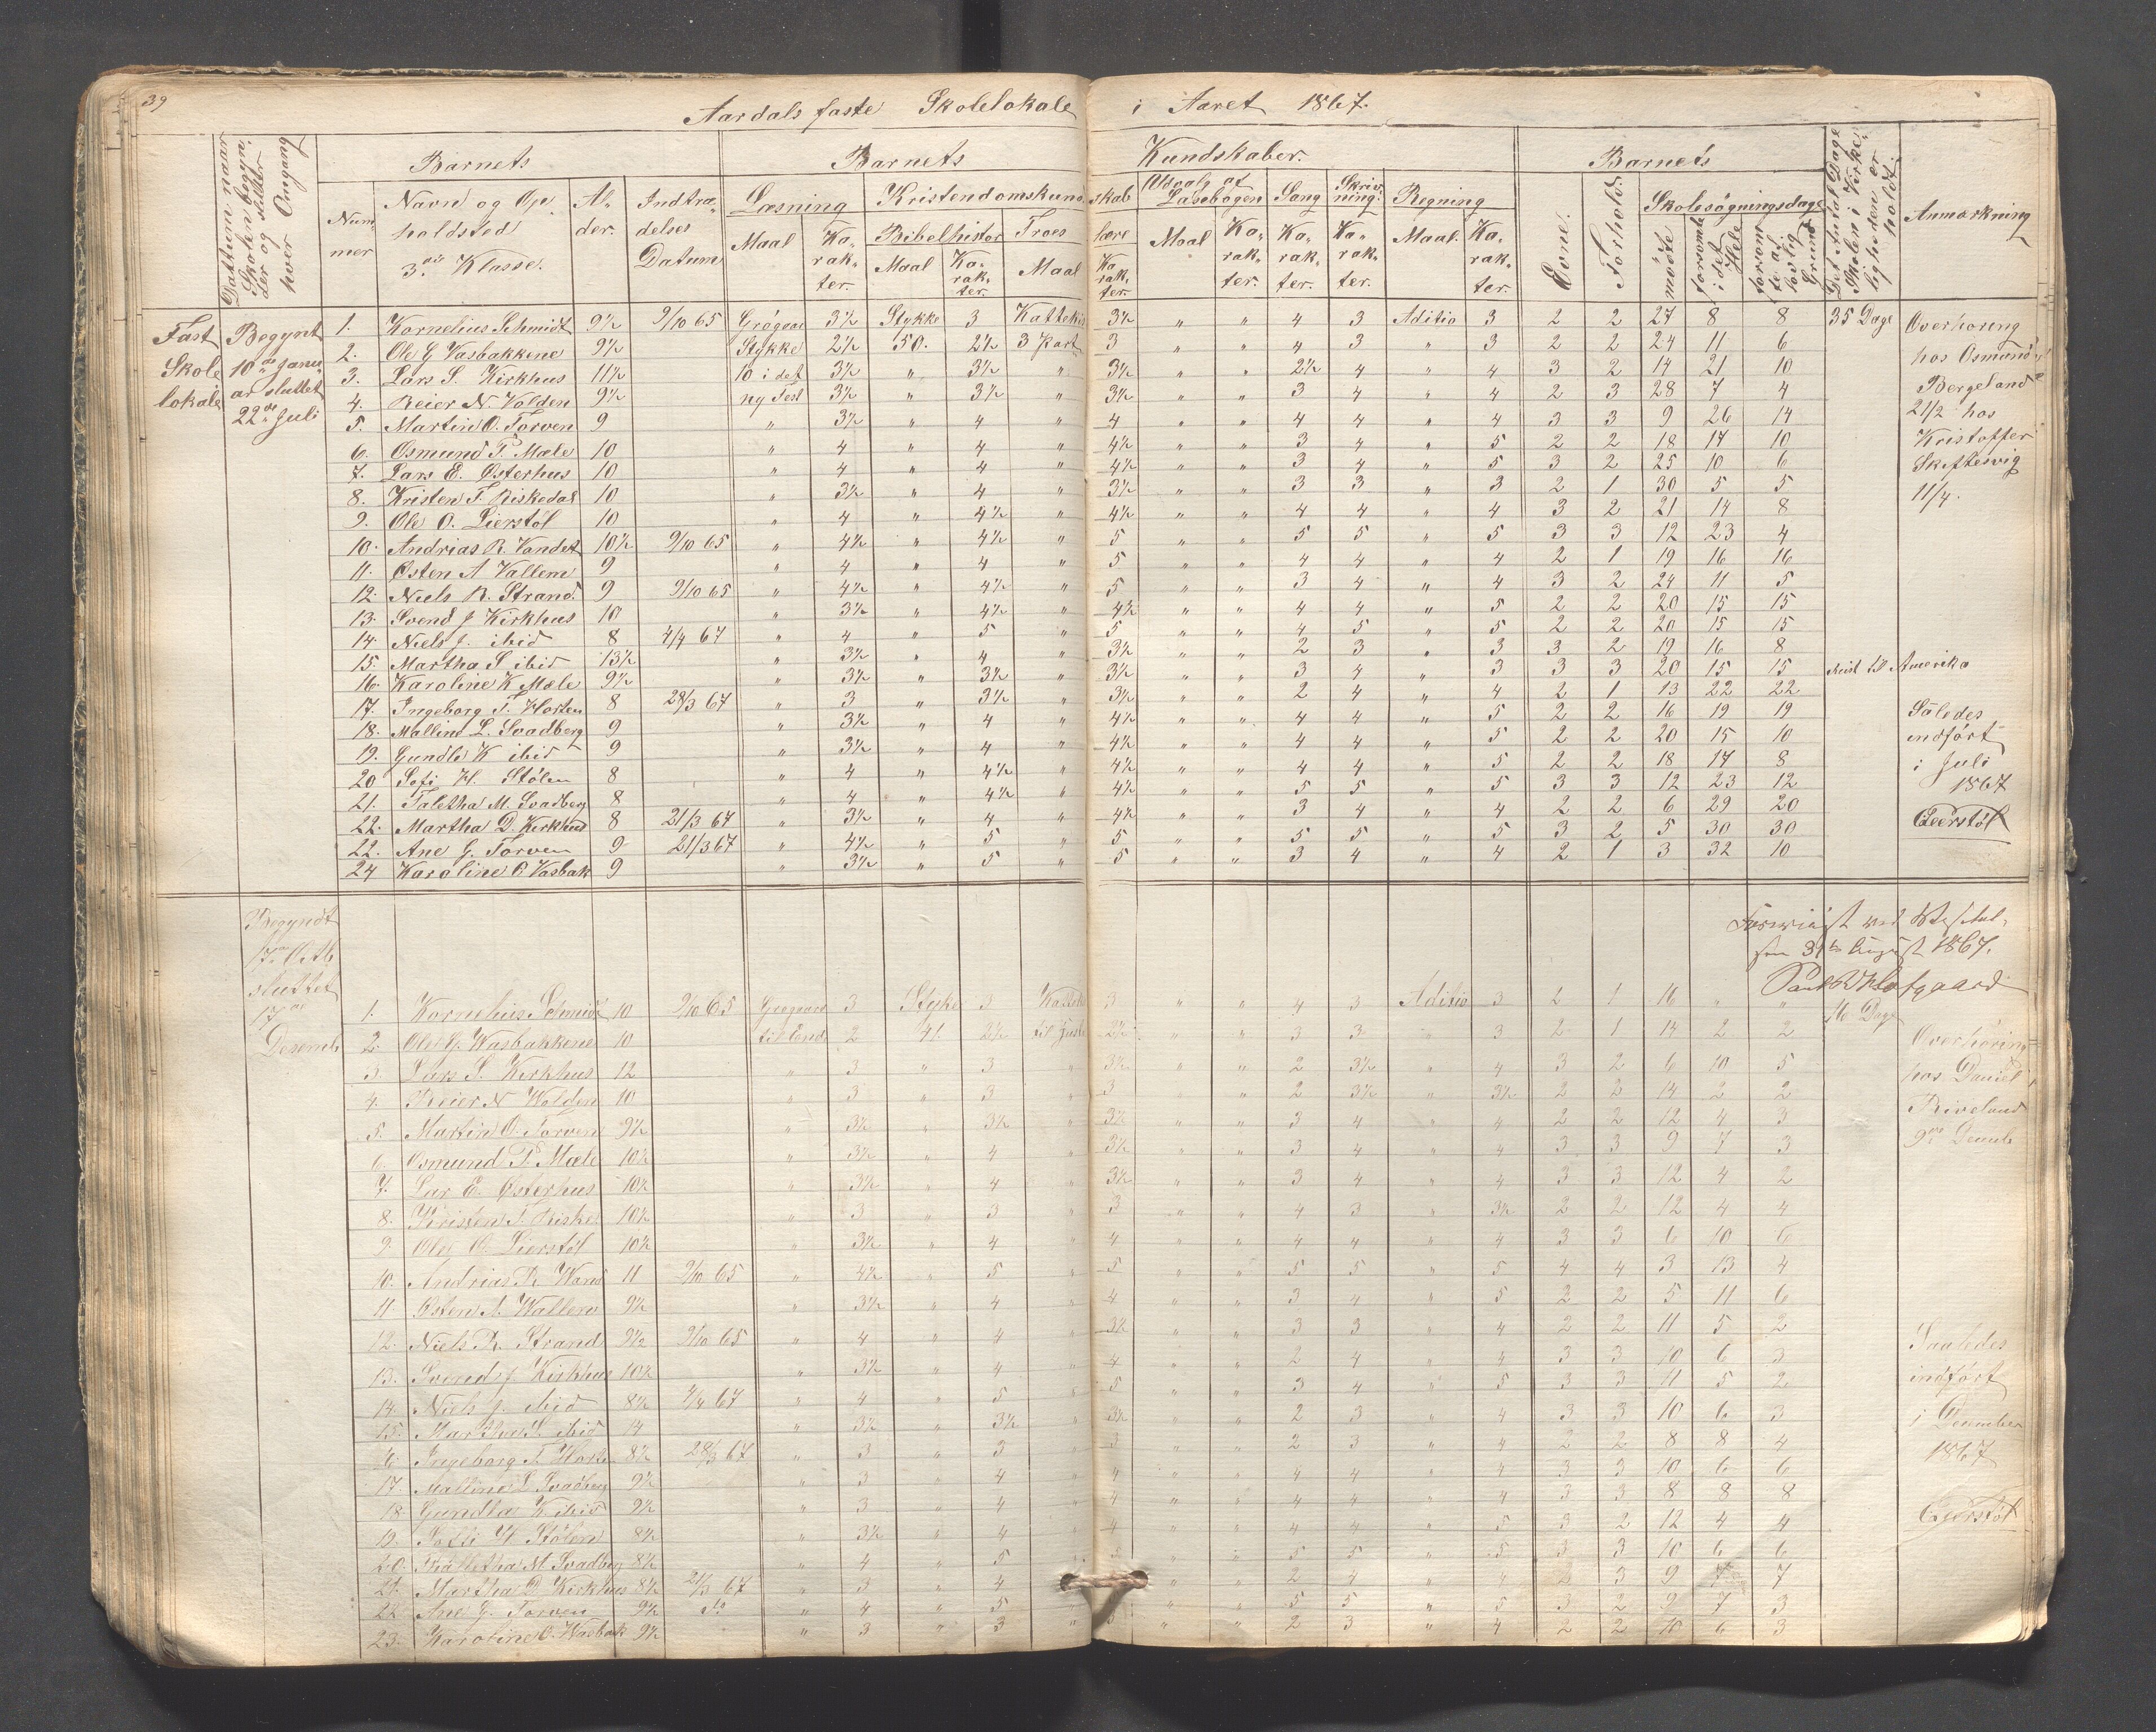 39
Aardals faste Skolelokale i Aaret 1867.
Dattum naar Skolen begyn- der og slutter hver Omgang
Barnets
Barnets
Kundskaber.
Barnets
Det Antal Dage Skolen i Virke- ligheden er holdt.
Anmærkning
Num- mer
Navn og Op- holdsted 3die Klasse.
Al- der.
Indtræ- delses Datum
Læsning
Kristendomskund skab
Udvalg af Læsebogen
Sang
Skriv- ning.
Regning
Evne.
Forhold.
Skolesøgningsdage
Maal
Ka- rak- ter.
Bibelhistor
Troes lære
Maal
Ka- rak- ter.
Maal
Ka- rak- ter.
Maal
Ka- rak- ter.
Ka- rak- ter.
Ka- rak- ter.
Maal.
Ka- rak- ter.
mødte
forsømte i det Hele
forsøm- te af lovlig Grund
Fast Skole lokale
Begynt 10de Janu- ar sluttet 22de Juli
1. Kornelius Schmidt 9½ 9/10 65 Grøgaar 3½ Stykke 3 Kattekis 3½ " " 4 3 Aditio 3 2 2 27 8 8 35 Dage
2. Ole G Vasbakkene 9½ Stykke 2½ 50. 2½ 3 Part 3 " " 4 3 " 3 2 2 24 11 6
3. Lars S. Kirkhus 11½ 10 i det 3½ " 3½ " 3½ " " 2½ 4 " 4 3 2 14 21 10
4. Reier N. Volden 9½ ny Test 3½ " 3½ " 3½ " " 3 4 " 4 2 3 28 7 4
5. Martin O. Torven 9 " 3½ " 4 " 4 " " 4 4 " 4 3 3 9 26 14
6. Osmund T Mæle 10 " 4 " 4 " 4½ " " 3 4 " 5 2 2 18 17 10
7. Lars E. Østerhus 10 " 4 " 4 " 4½ " " 3 4 " 5 3 2 25 10 6
8. Kristen T. Riskedal 10 " 3½ " 4 " 3½ " " 3 3 " 3 2 1 30 5 5
9. Ole O. Lierstøl 10 " 4 " 4½ " 4½ " " 4 4 " 4 3 2 21 14 8
10. Andrias R. Vandet 10½ 9/10 65 " 4½ " 4½ " 5 " " 5 5 " 5 3 3 12 23 4
11. Østen A Vallem 9 " 4 " 4 " 5 " " 4 4 " 4 2 1 19 16 16
12 Niels R. Strand. 9 9/10 65 " 4½ " 4½ " 5 " " 3 4 " 4 3 2 24 11 5
13. Svend J Kirkhus 10 " 3½ " 4½ " 4½ " " 4 4 " 5 2 2 20 15 15
14. Niels J. ibid 8 4/4 67 " 4 " 5 " 5 " " 4 5 " 5 2 2 20 15 15
15. Martha S ibid 13½ " 3½ " 4 " 3½ " " 2 3 " 3 3 2 19 16 8
16. Karoline K Mæle 9½ " 3½ " 3½ " 3½ " " 3 4 " 3 3 3 20 15 15 reist til Amerika
17. Ingeborg T. Horten 8 28/3 67 " 3 " 3½ " 3½ " " 2 4 " 4 2 1 13 22 22
18. Mallene L. Svadberg 9 " 3½ " 4 " 4½ " " 4 4 " 5 2 2 16 19 19
19. Gundle K ibid 9 " 3½ " 4 " 4½ " " 4 4 " 5 2 2 20 15 10
20 Sofi H. Stølen 8 " 4 " 4½ " 4½ " " 4 4 " 5 2 2 18 17 8
21. Taletha M. Svadberg 8 " 4 " 4½ " 4½ " " 5 5 " 5 3 3 12 23 12
22. Martha D. Kirkhus 8 21/3 67 " 3½ " 4 " 4½ " " 3 4 " 4 2 2 6 29 20
22. Ane G. Torven 9 21/3 67 " 4½ " 5 " 5 " " 5 5 " 5 3 2 5 30 30
24 Karoline O Vasbak 9 " 3½ " 5 " 5 " " 3 4 " 4 2 1 3 32 10
Overhøring
hos Osmund
Bergeland
21/2 hos
Kristoffer
Skiftesvig
11/4.
Således
indført
i Juli
1867
GLierstøl
Begyndt
17de Octb
sluttet
17de
Desemb
31te August 1867.
1. Kornelius Schmidt 10 9/10 65 Grøgaard 3 Stykke 3 Kattek 3 " " 4 3 Aditio 3 2 1 16 " " 16 Dage
2. Ole G. Wasbakkene 10 til Ende 2 41. 2½ 2½ " " 3 3 " 3 2 1 14 2 2
3. Lars S. Kirkhus 12 " 3 " 3 " 3½ " " 2 3½ " 4 3 2 6 10 5
4. Reier N Wolden 10 " 3 " 3 " 3 " " 2 3½ " 3½ 2 2 14 2 2
5. Martin O. Torven 9½ " 3½ " 3½ " 3½ " " 3 4 " 4 2 2 12 4 3
6. Osmund T. Mæle 10½ " 3½ " 4 " 3½ " " 3 4 " 4 3 3 9 7 3
7. Lar E. Østerhus 10½ " 3½ " 4 " 3½ " " 3 4 " 4 3 3 12 4 2
8. Kristen T. Riske 10½ " 3 " 3 " 3 " " 4 3 " 3½ 2 2 12 4 4
9. Ole O. Lierstøl 10½ " 3½ " 4 " 4 " " 4 4 " 4 3 3 6 10 6
10. Andrias R Wand 11 9/10 65 " 4½ " 5 " 5 " " 5 5 " 5 4 4 3 13 4
11. Østen A. Wallem 9½ " 3½ " 4 " 4 " " 3 4 " 5 2 2 5 11 6
12. Niels R. Strand 9½ 9/10 65 " 4 " 4 " 3½ " " 3 3 " 4 2 2 11 5 2
13. Svend J Kirkhus 10½ " 3½ " 4 " 4 " " 2 4 " 4 3 3 10 6 3
14. Niels J. ibid 8½ 4/4 67 " 4 " 5 " 5 " " 3 4 " 5 3 3 11 5 2
15. Martha S. ibid 14 " 3½ " 3½ " 3½ " " 2 3 " 4 3 3 10 6 3
16. Ingeborg T. Horte 8½ 28/3 67 " 3 " 3 " 3 " " 2 3 " 4 2 2 8 8 4
17. Mallene L Svadberg 9½ " 3 " 4 " 4 " " 4 4 " 4 3 3 10 6 6
18 Gundla K ibid 9½ " 3 " 4 " 4 " " 4 4 " 4 3 3 8 8 8
19. Sofii H Stølen 8½ " 3½ " 4 " 4 " " 4 4 " 5 3 2 12 4 4
20. Thaletha M. Svadberg 8½ " 4 " 5 " 5 " " 5 5 " 5 3 3 10 6 6
21. Martha D Kirkhus 8½ 21/3 67 " 3 " 4 " " 2 4 " 4 2 3 9 7 7
22 Ane G. Torven 9½ do " 4 " 5 " " 5 5 " 5 3 2 9 7 3
23. Karoline O. Wasbak 9½ " 3 " 3 " " 2 3 " 4 2 2 10 6 3
Overhøring
hos Daniel
Riveland
9de Decemb
Saaledes
indført
i December
1867
GLierstøl